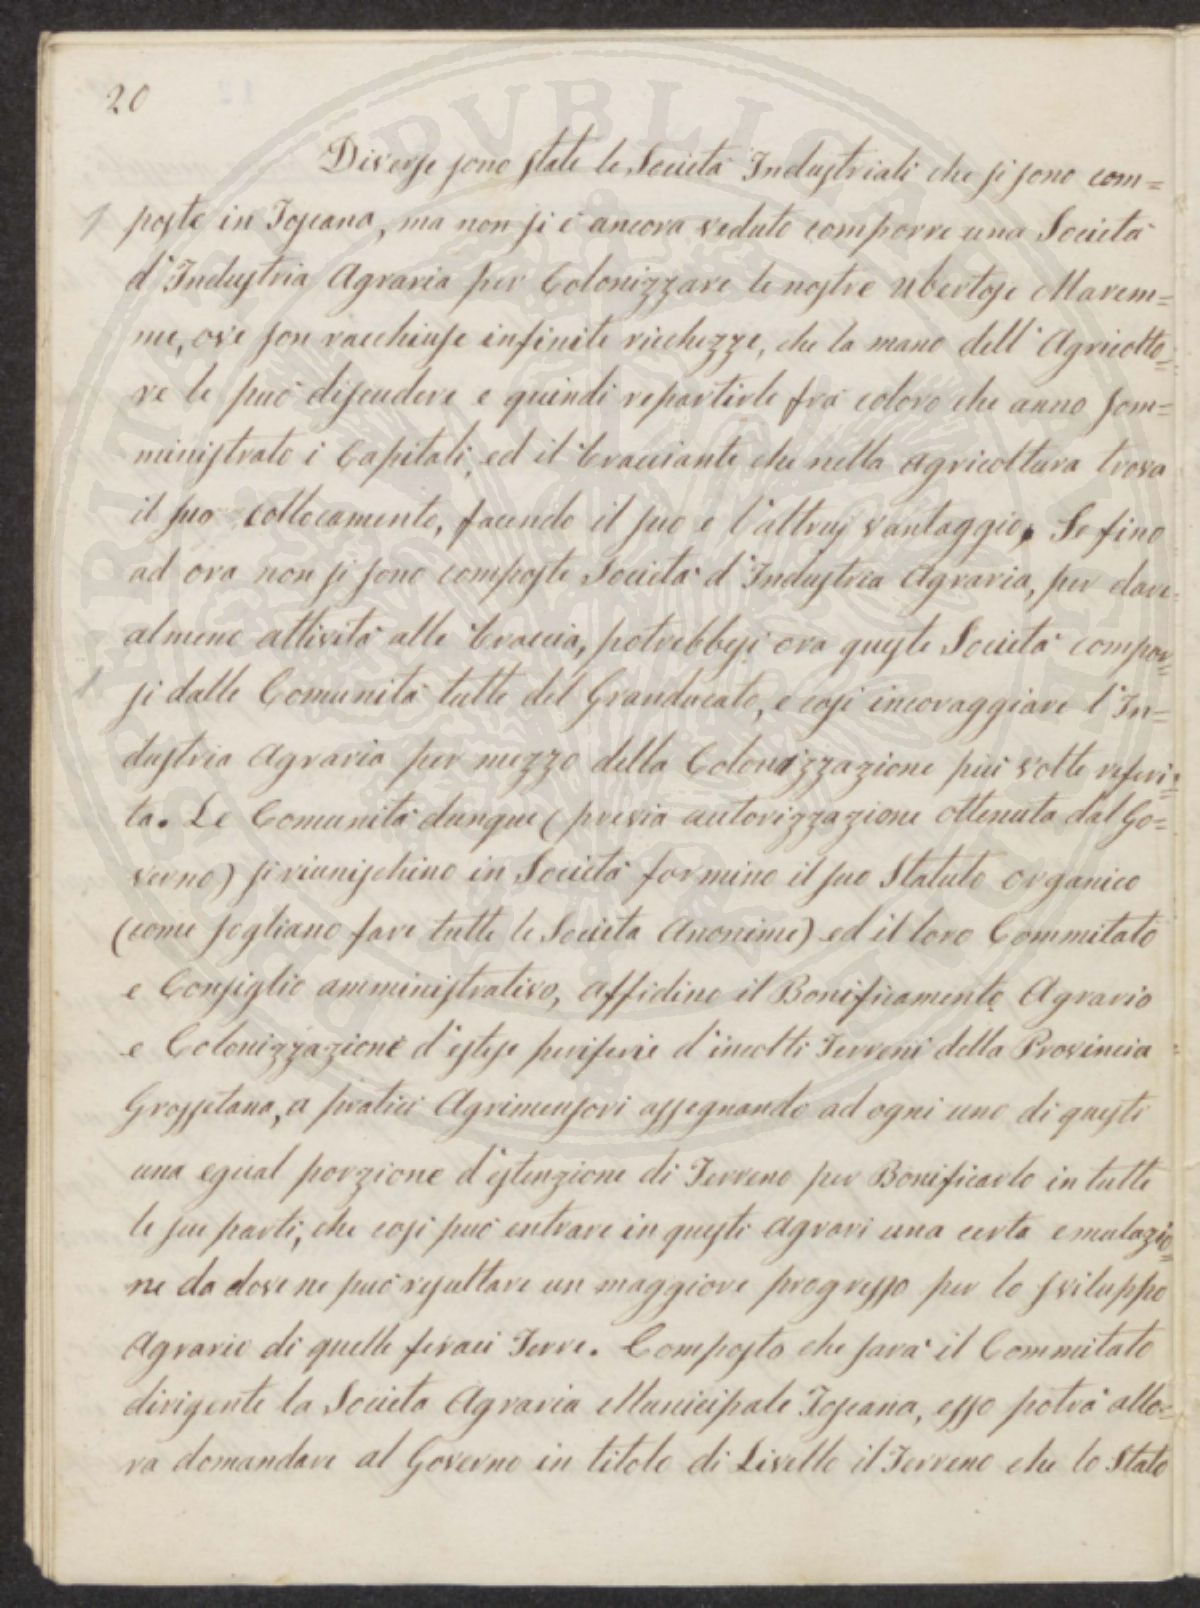 20
Diverse sono state le Società Industriali che si sono com=
poste in Toscana, ma non si è ancora veduto comporre una Società
d'Industria Agraria per Colonizzare le nostre Ubertose Marem=
me, ove son racchiuse infinite ricchezze, che la mano dell'Agricolto=
re le può discudere e quindi repartirle frà coloro che anno som=
ministrato i Capitali, ed il bracciante che nella agricoltura trova
il suo collocamento, facendo il suo e l'altrui vantaggio. Se fino
ad ora non si sono composte Società d'Industria Agraria, per dare
almeno attività alle braccia, potrebbesi ora queste Società compor=
si dalle Comunità tutte del Granducato, e così incoraggiare l'In=
dustria Agraria per mezzo della Colonizzazione più volte referi=
ta. Le Comunità dunque (previa autorizzazione ottenuta dal Go=
verno) si riunischino in Società formino il suo Statuto organico
(come sogliano fare tutte le Società Anonime) ed il loro Commitato
e Consiglio amministrativo, affidino il Bonificamento Agrario
e Colonizzazione d'estese periferie d'incolti Terreni della Provincia
Grossetana, a pratici Agrimensori assegnando ad ogni uno di questi
una egual porzione d'estenzione di Terreno per Bonificarlo in tutte
le sue parti, che così può entrare in questi agrari una certa emulazio=
ne da dove ne può resultare un maggiore progresso per lo sviluppo
Agrario di quelle feraci Terre. Composto che sarà il Commitato
dirigente la Società Agraria Municipale Toscana, esso potrà allo=
ra domandare al Governo in titolo di Livello il Terreno che lo Stato